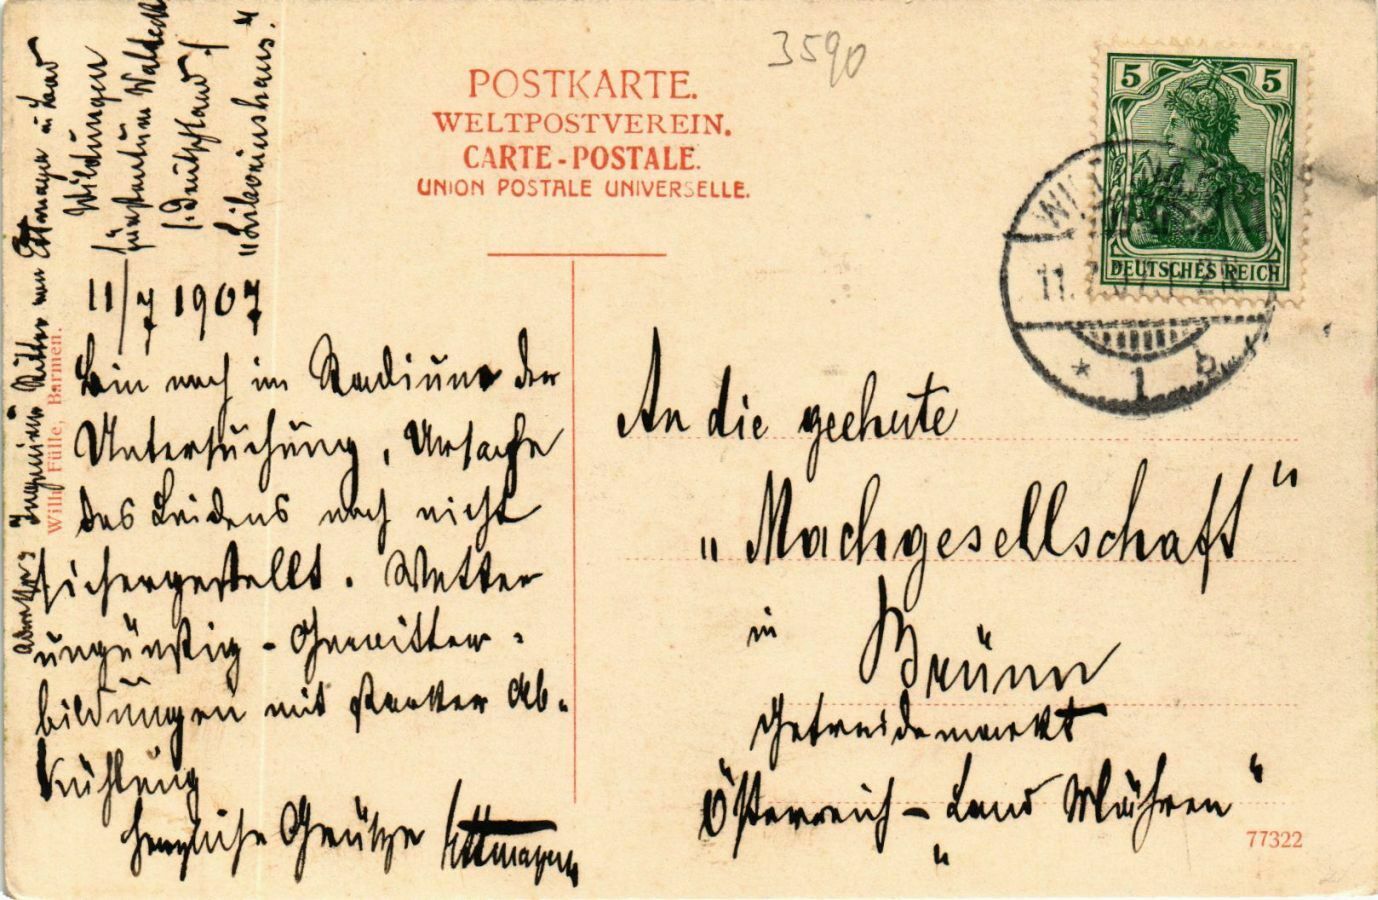 3590
POSTKARTE.
WELTPOSTVEREIN.
CARTE-POSTALE.
UNION POSTALE UNIVERSELLE.
5 5
DEUTSCHES REICH
* 1 B
Wilh. Fülle, Barmen.
Ingenieur Ritter von Ettmayer
Wildungen
Fürstentum Waldeck
(Deutschland)
11/7 1907
Bin noch im Stadium der
Untersuchung, Ursache
des Leidens noch nicht
sichergestellt. Wetter
ungünstig - Gewitter-
bildungen mit starker Ab-
kühlung
Herzliche Grüße Ettmayer
An die geehrte
„Machgesellschaft"
in
Brünn
Getreidemarkt
Österreich - Land Mähren
77322